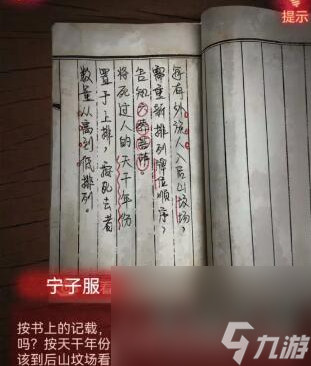 提示
每有外族人入后山坟场，
需重新排列牌位顺序，
告知
将死过人的天干年份
置于上排，死去者
数量从高到低排列。
宁子服
看
按书上的记载，
吗？按天干年份
该到后山坟场看
九游